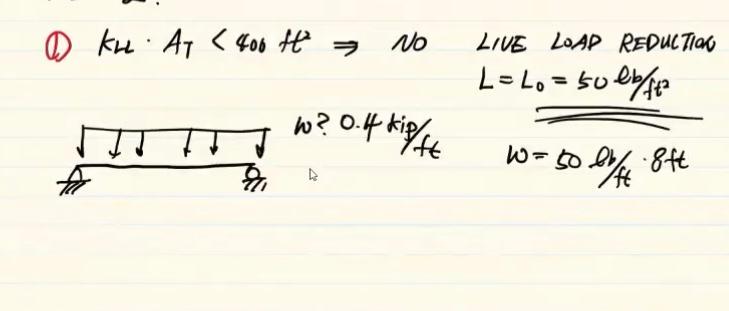 ① KLL · AT < 400 ft² ⇒ NO LIVE LOAD REDUCTION
L = L₀ = 50 lb/ft²
w? 0.4 kip/ft
w = 50 lb/ft · 8ft